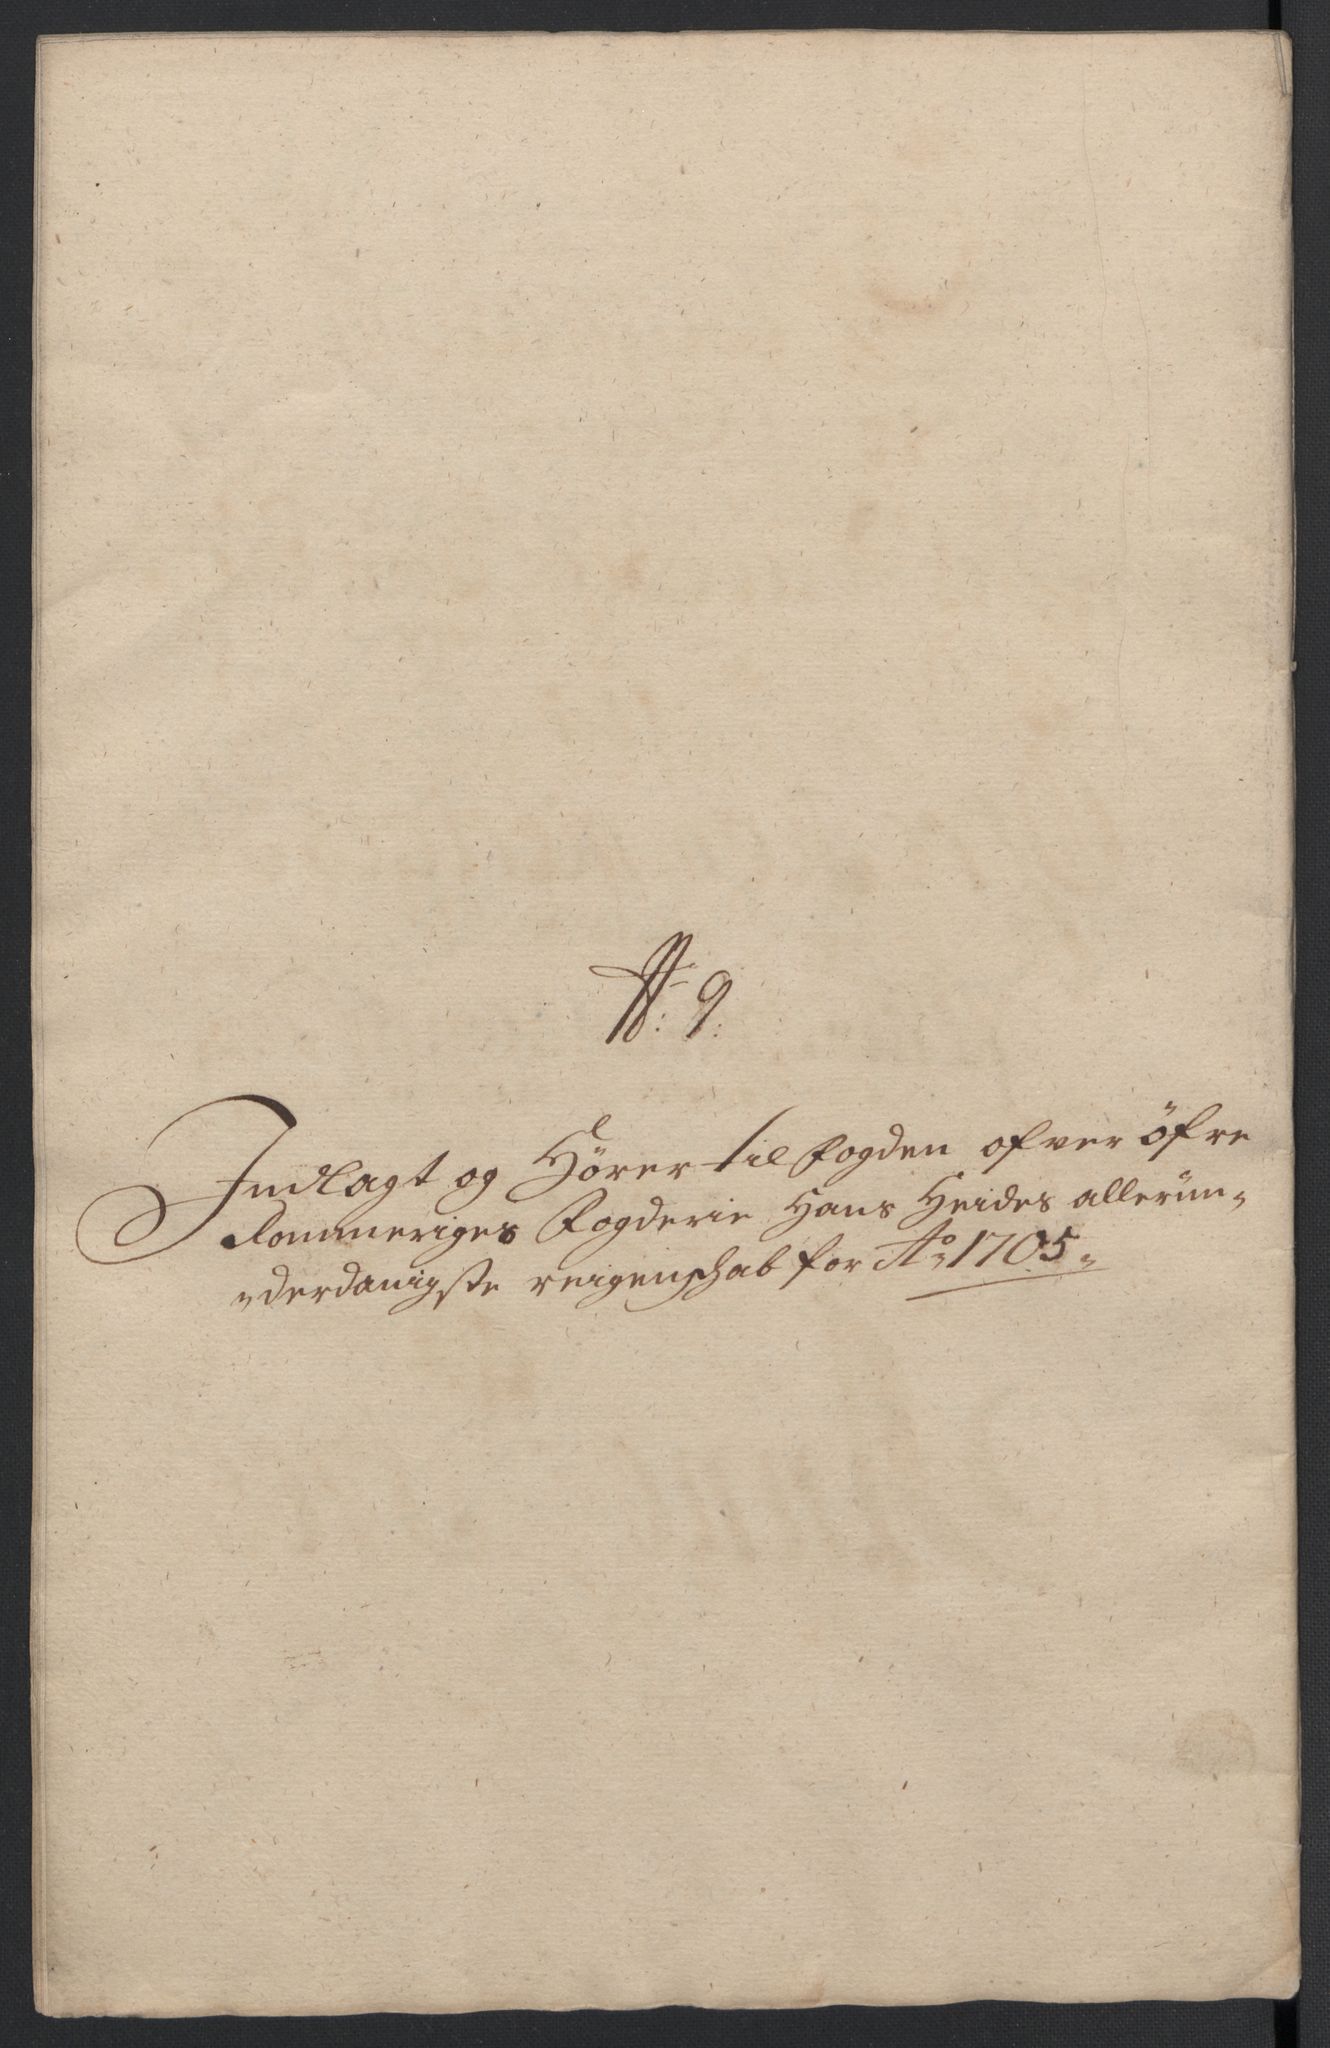 N: 9:
Indlagt og Hörer til Fogden ofver Öfre
Rommeriges Fogderie Hans Heides allerün„
„derdanigste reigenschab for Ao: 1705„